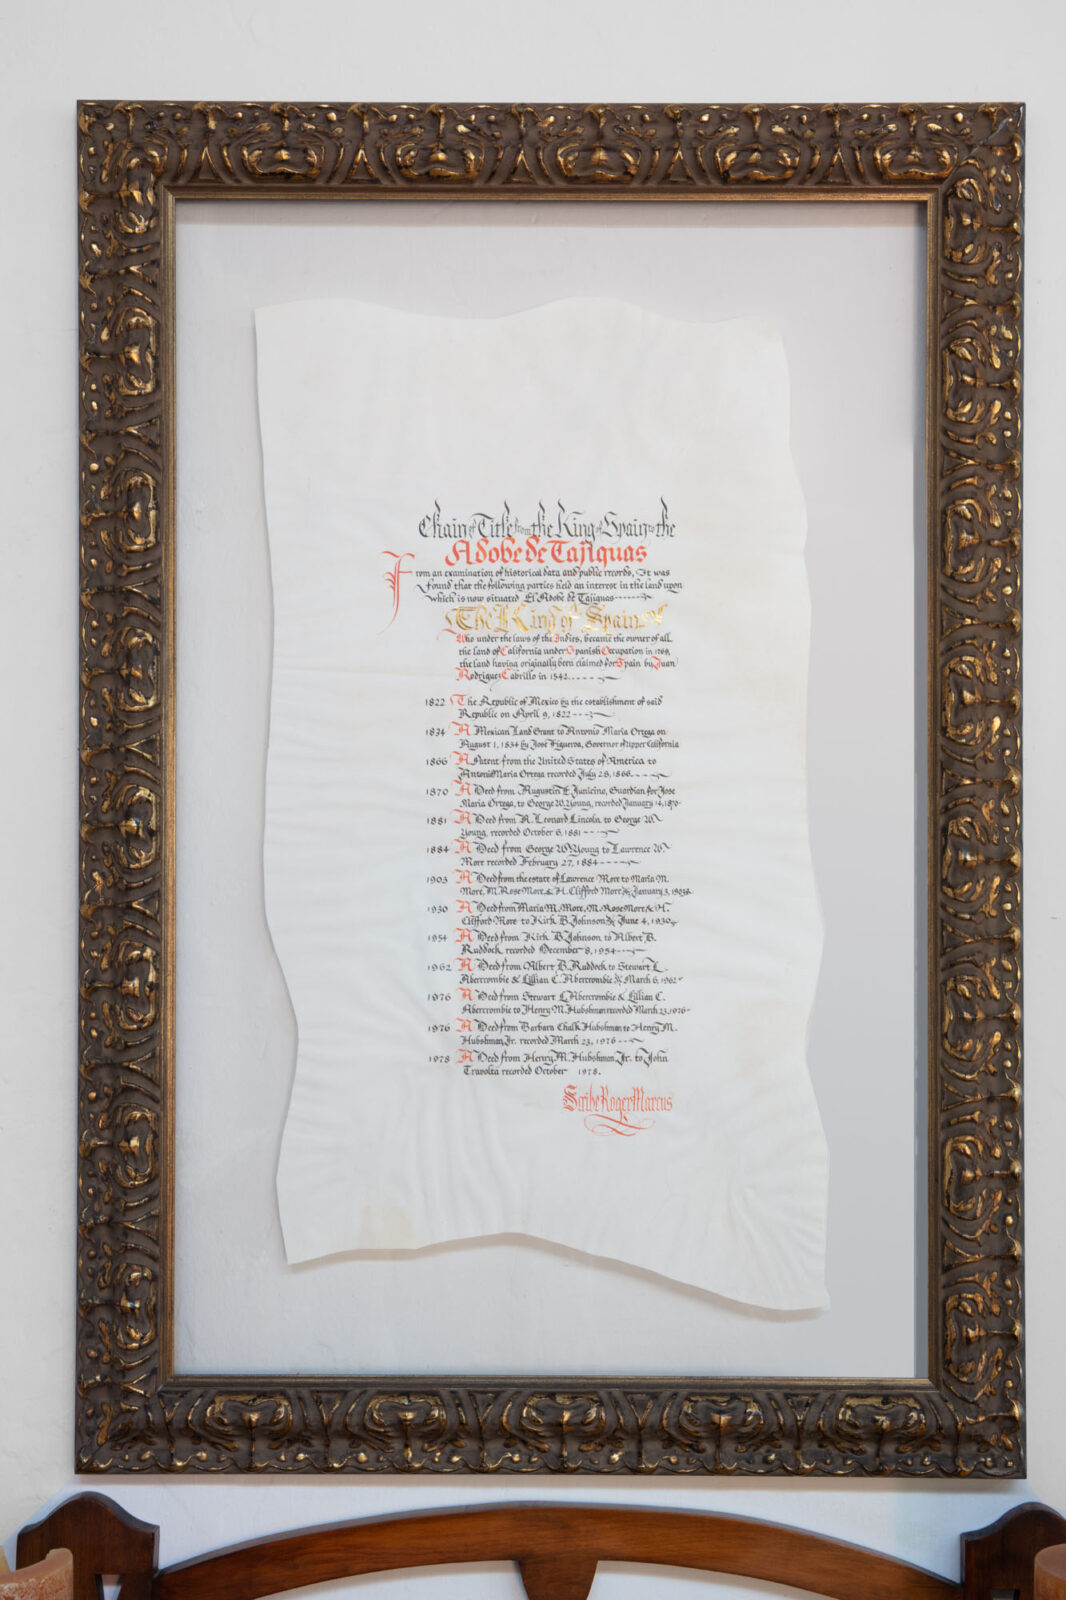 Chain of Title from the King of Spain to the
Adobe de Tajiguas
From an examination of historical data and public records, It was
found that the following parties held an interest in the land upon
which is now situated El Adobe de Tajiguas
The King of Spain
Who under the laws of the Indies, became the owner of all
the land of California under Spanish Occupation in 1769,
the land having originally been claimed for Spain by Juan
Rodriguez Cabrillo in 1542
1822 The Republic of Mexico by the establishment of said
Republic on April 9, 1822
1834 A Mexican Land Grant to Antonio Maria Ortega on
August 1, 1834 by José Figueroa, Governor of Upper California
1866 A Patent from the United States of America to
Antonio Maria Ortega recorded July 28, 1866
1870 A Deed from Augustin E. Guardian for Jose
Maria Ortega, to George W. Young, recorded January 14, 1870
1881 A Deed from A. Leonard Lincoln to George W.
Young, recorded October 6, 1881
1884 A Deed from George W. Young to Lawrence W.
More recorded February 27, 1884
1903 A Deed from the estate of Lawrence More to Maria M.
More, M. Rose More & H. Clifford More January 3, 1903
1930 A Deed from Maria M. More, M. Rose More & H.
Clifford More to Kirk B. Johnson June 4, 1930
1954 A Deed from Kirk B. Johnson to Albert B.
Ruddock recorded December 8, 1954
1962 A Deed from Albert B. Ruddock to Stewart L.
Abercrombie & Lillian C. Abercrombie March 6, 1962
1976 A Deed from Stewart L. Abercrombie & Lillian C.
Abercrombie to Henry M. Hubshman recorded March 23, 1976
1976 A Deed from Barbara Chalk Hubshman to Henry M.
Hubshman, Jr. recorded March 23, 1976
1978 A Deed from Henry M. Hubshman, Jr. to John
Travolta recorded October 1978.
Scribe Roger Marcus